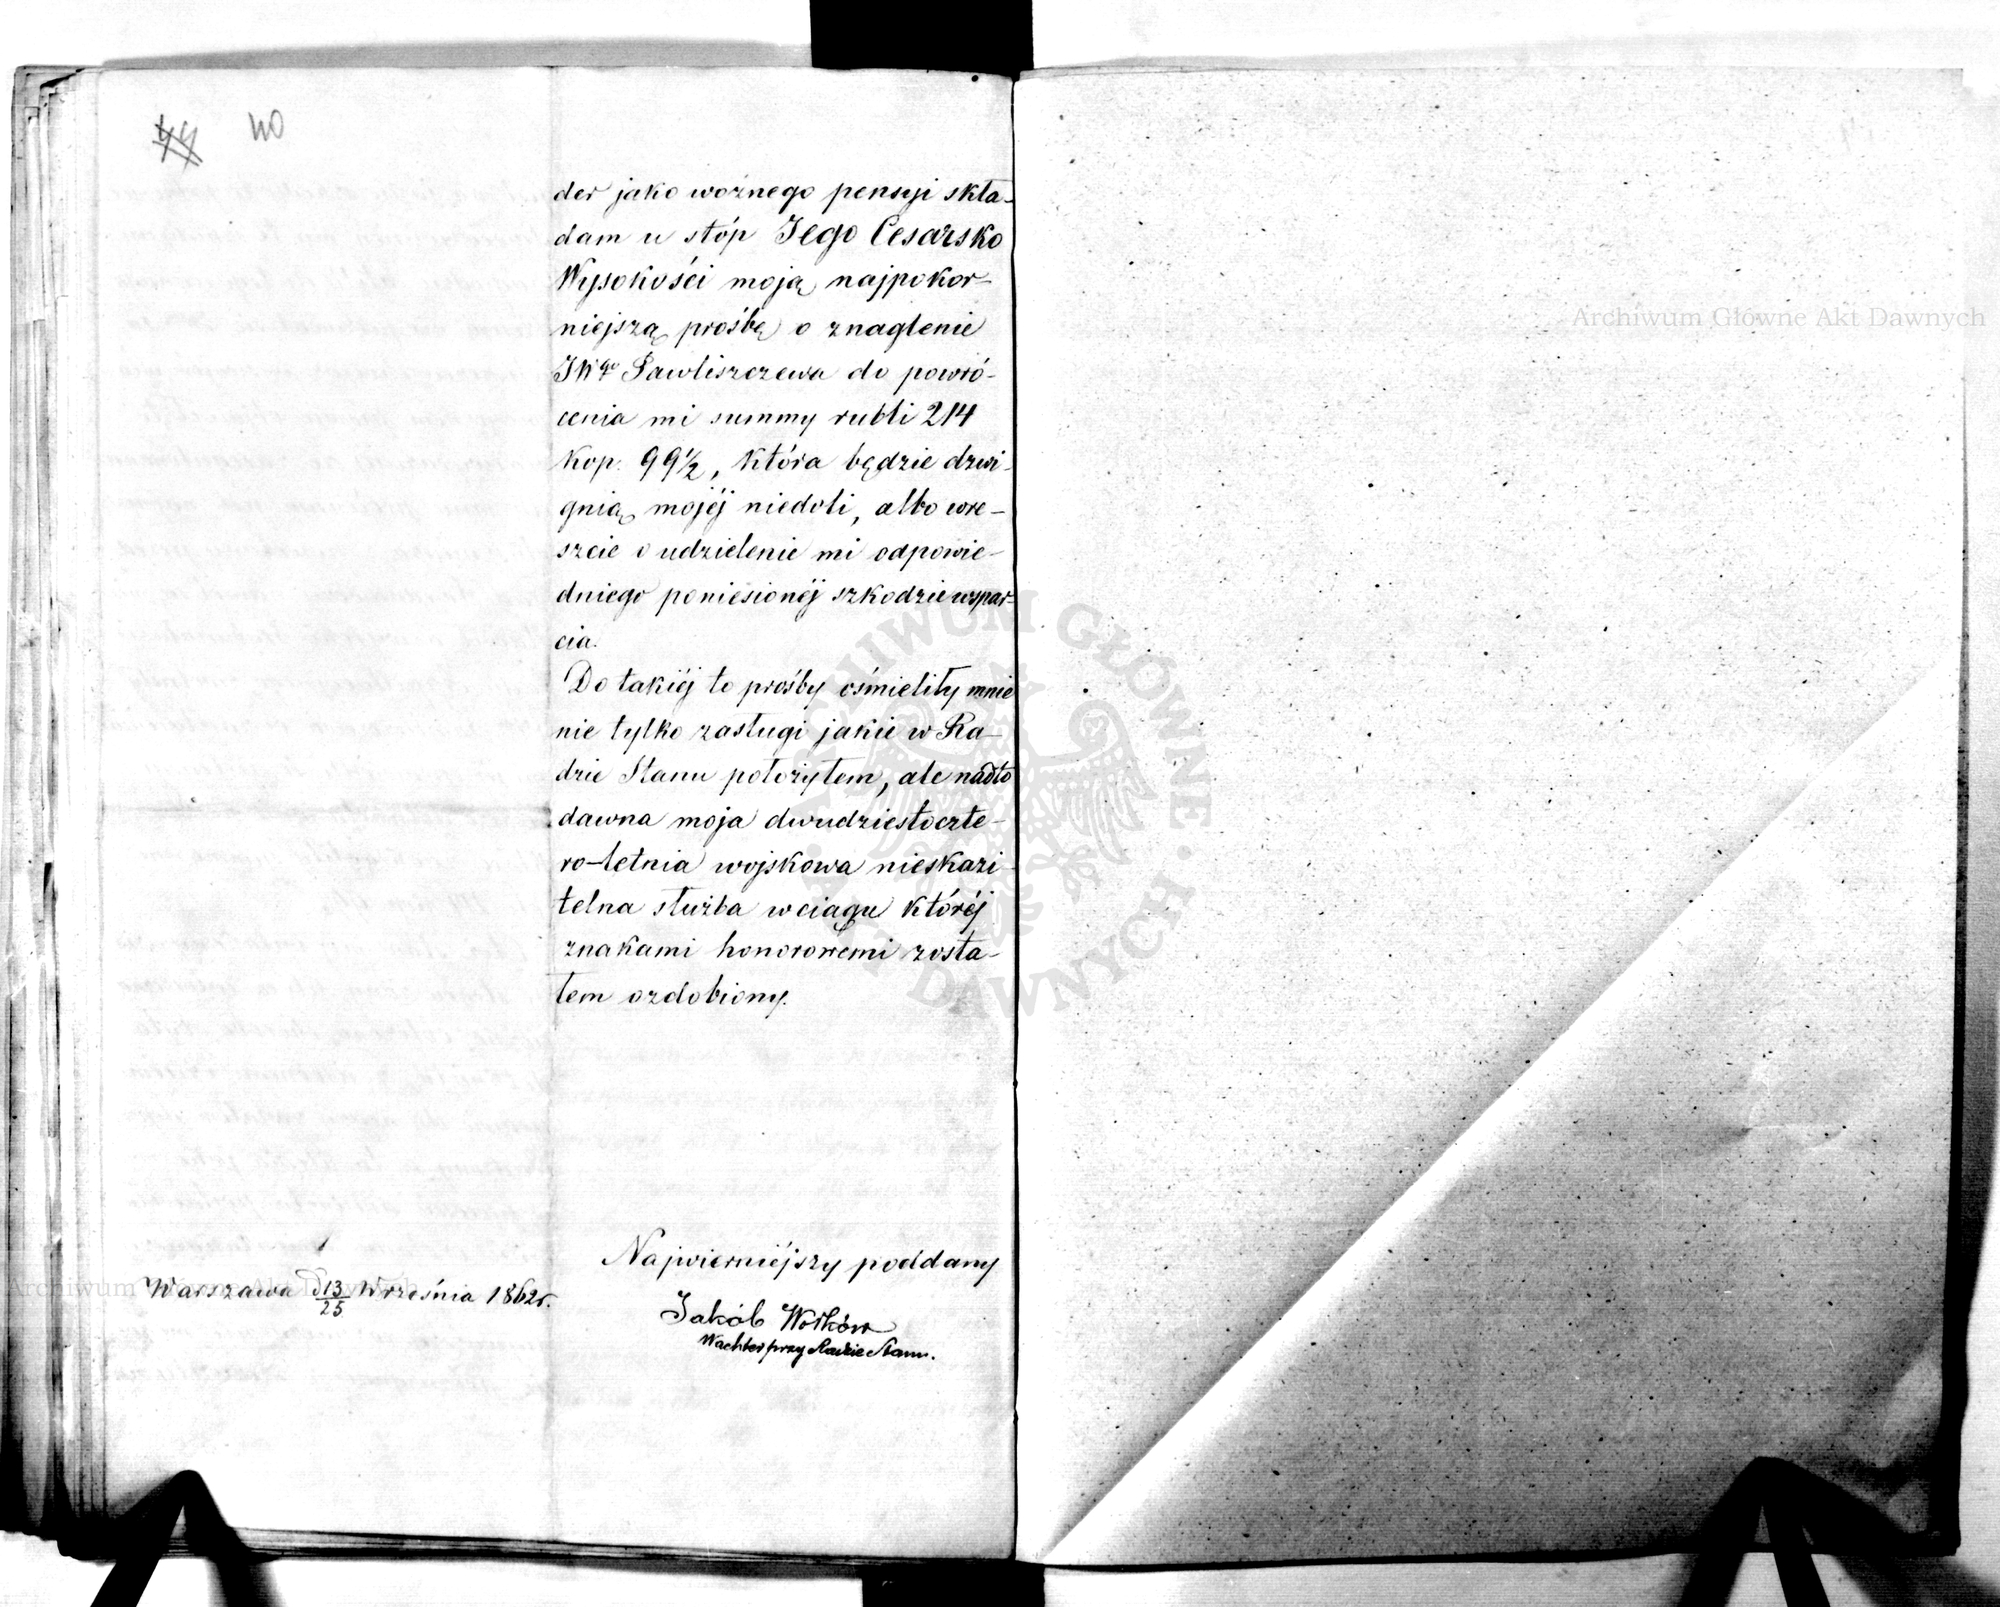 44 40
der jako woźnego pensyi skła-
dam u stóp Jego Cesarsko
Wysokości moją najpokor-
niejszą prośbę o znaglenie
JWgo Pawliszczewa do powró-
cenia mi summy rubli 214
kop. 99 1/2, która będzie dzwi-
gnią mojéj niedoli, albo wre-
szcie o udzielenie mi odpowie-
dniego poniesionéj szkodzie wspar-
cia.
Do takiéj to prośby ośmieliły mnie
nie tylko zasługi jakie w Ra-
dzie Stanu położyłem, ale nadto
dawna moja dwudziestoczte-
ro-letnia wojskowa nieskazi-
telna służba w ciągu któréj
znakami honorowemi zosta-
łem ozdobiony.
Najwierniéjszy poddany
Warszawa d 13/25 Września 1862r.
Jakób Wołków
Wachter przy Radzie Stanu.
Archiwum Główne Akt Dawnych
Archiwum Główne Akt Dawnych
ARCHIWUM GŁÓWNE AKT DAWNYCH